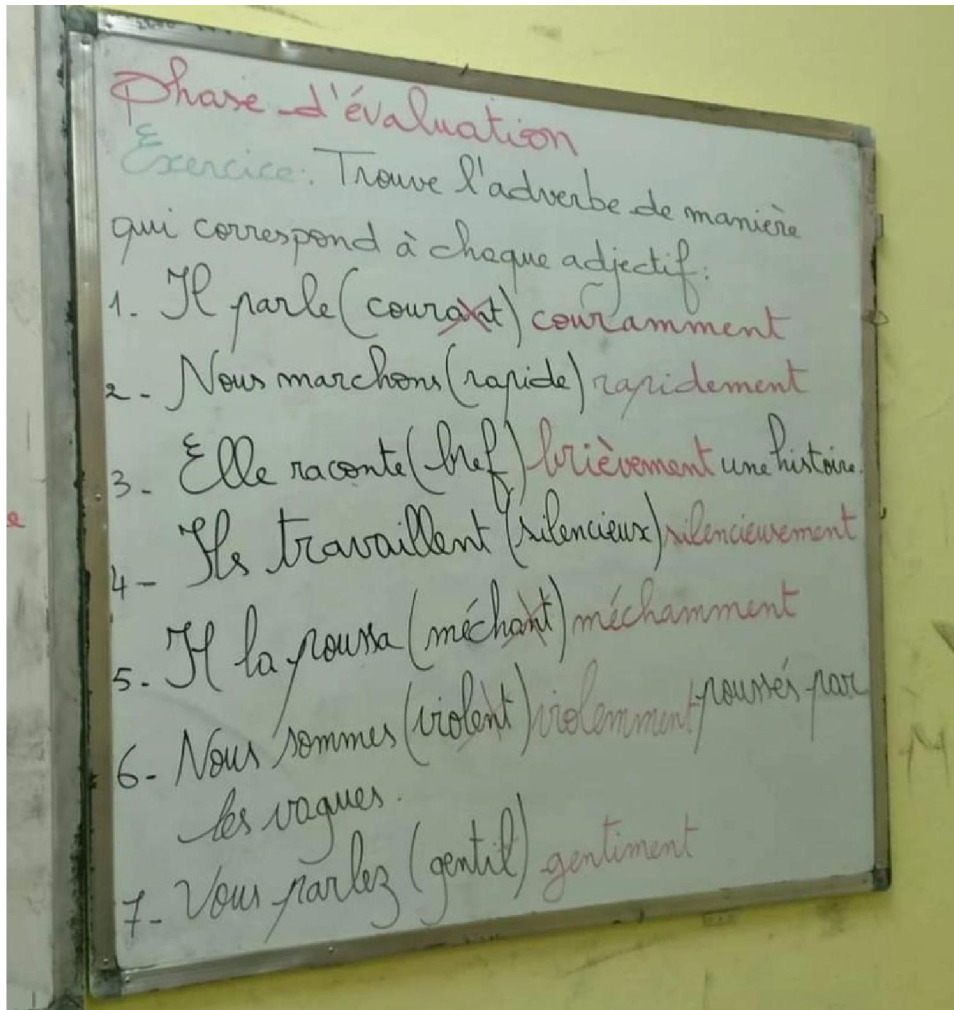 Phase d'évaluation
Exercice: Trouve l'adverbe de manière
qui correspond à chaque adjectif:
1. Il parle (courant) couramment
2- Nous marchons (rapide) rapidement
3- Elle raconte (bref) brièvement une histoire.
4- Ils travaillent (silencieux) silencieusement
5. Il la poussa (méchant) méchamment
6- Nous sommes (violent) violemment poussés par
les vagues.
7- Vous parlez (gentil) gentiment
e